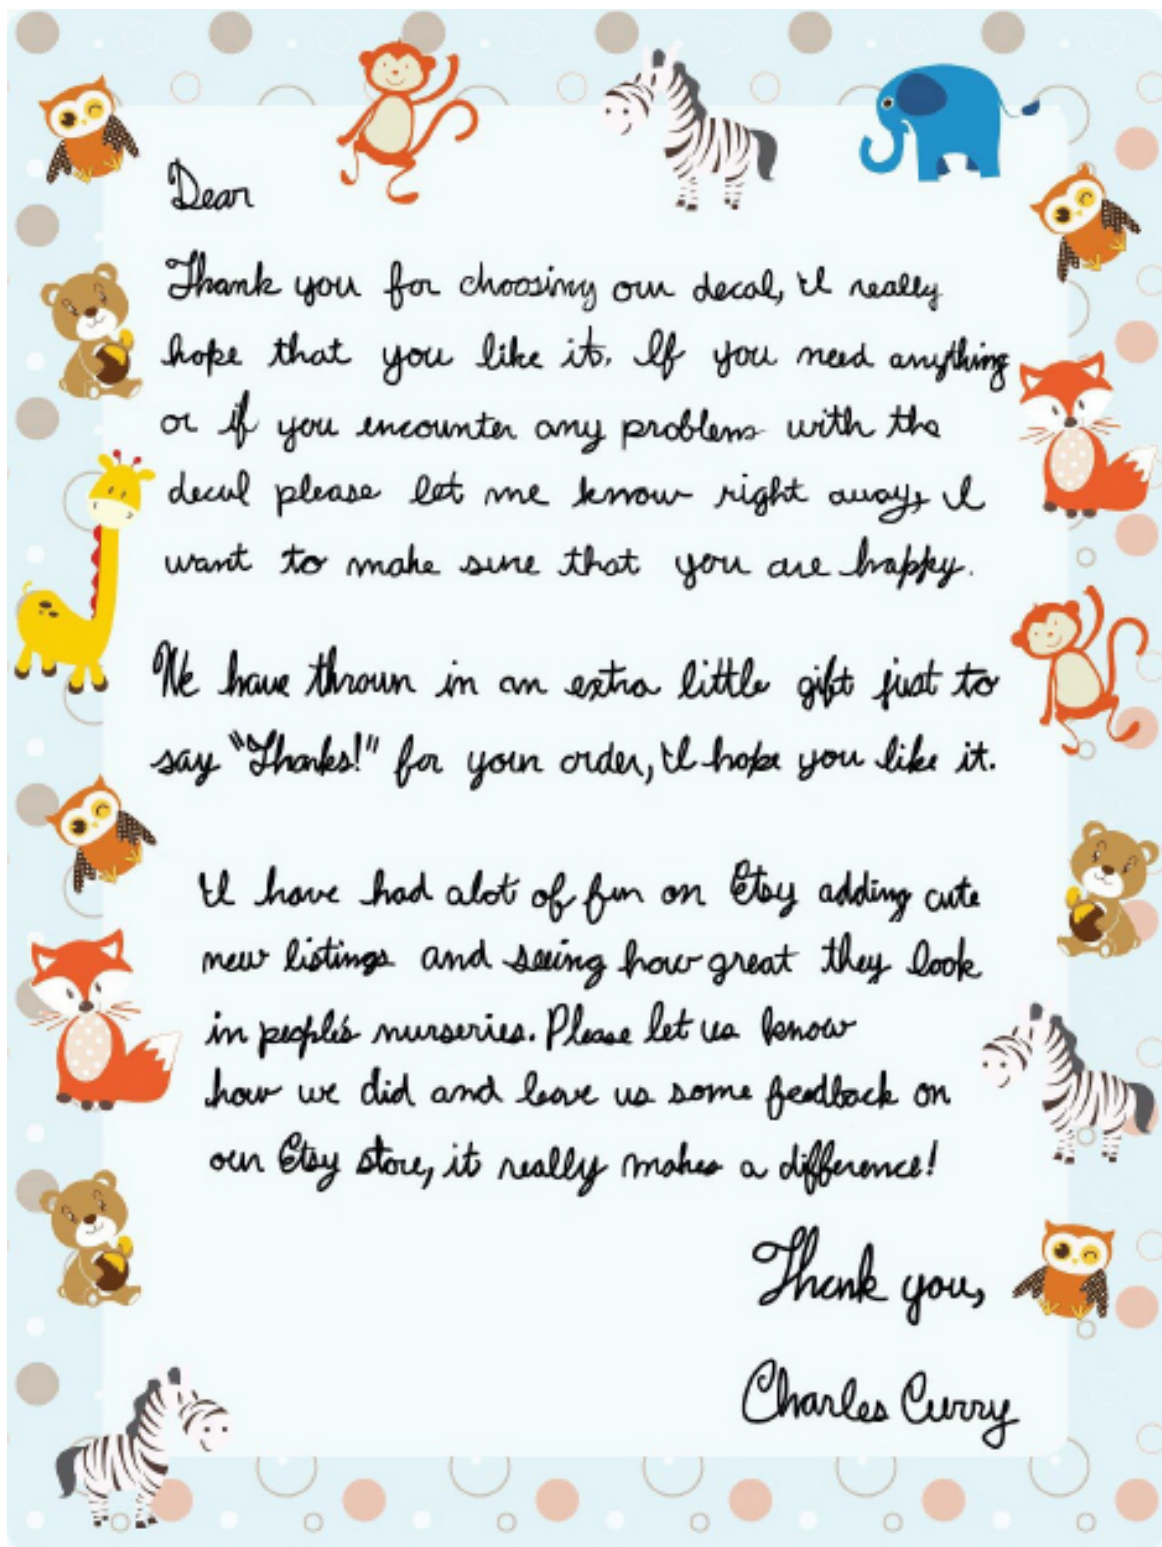 Dear
Thank you for choosing our decal, I really
hope that you like it. If you need anything
or if you encounter any problems with the
decal please let me know right away, I
want to make sure that you are happy.
We have thrown in an extra little gift just to
say "Thanks!" for your order, I hope you like it.
I have had alot of fun on Etsy adding cute
new listings and seeing how great they look
in people's nurseries. Please let us know
how we did and leave us some feedback on
our Etsy store, it really makes a difference!
Thank you,
Charles Curry